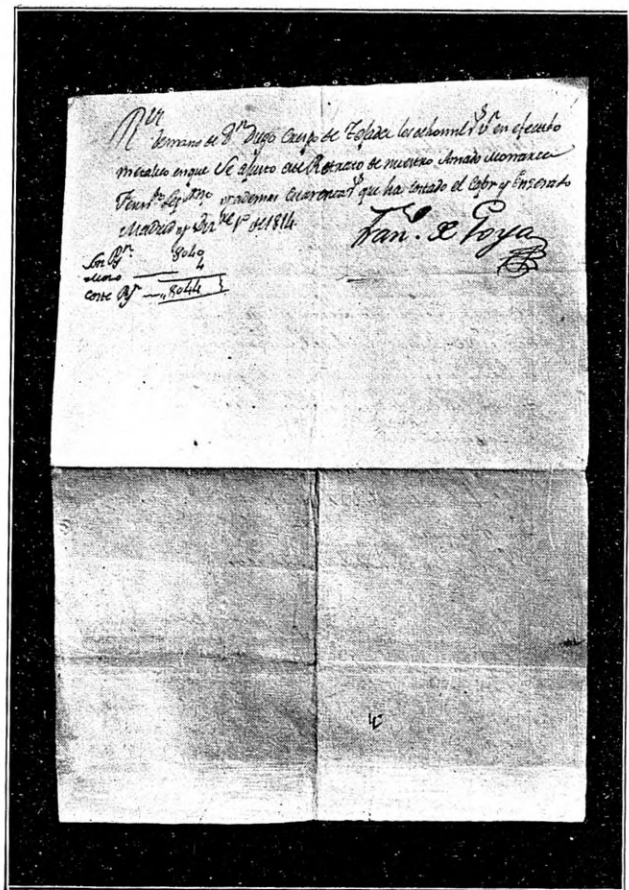 Reci
de mano de Dn Diego Crespo de Tejada los ochomil rs vn en efectivo
metalico en que Se ajusto el Retrato de nuestro Amado Monarca
y ademas Cuarenta rs que ha costado el
Madrid y 1º de 1814.
Franco de Goya
Son Rs 8040
4
Coste Rs 8044